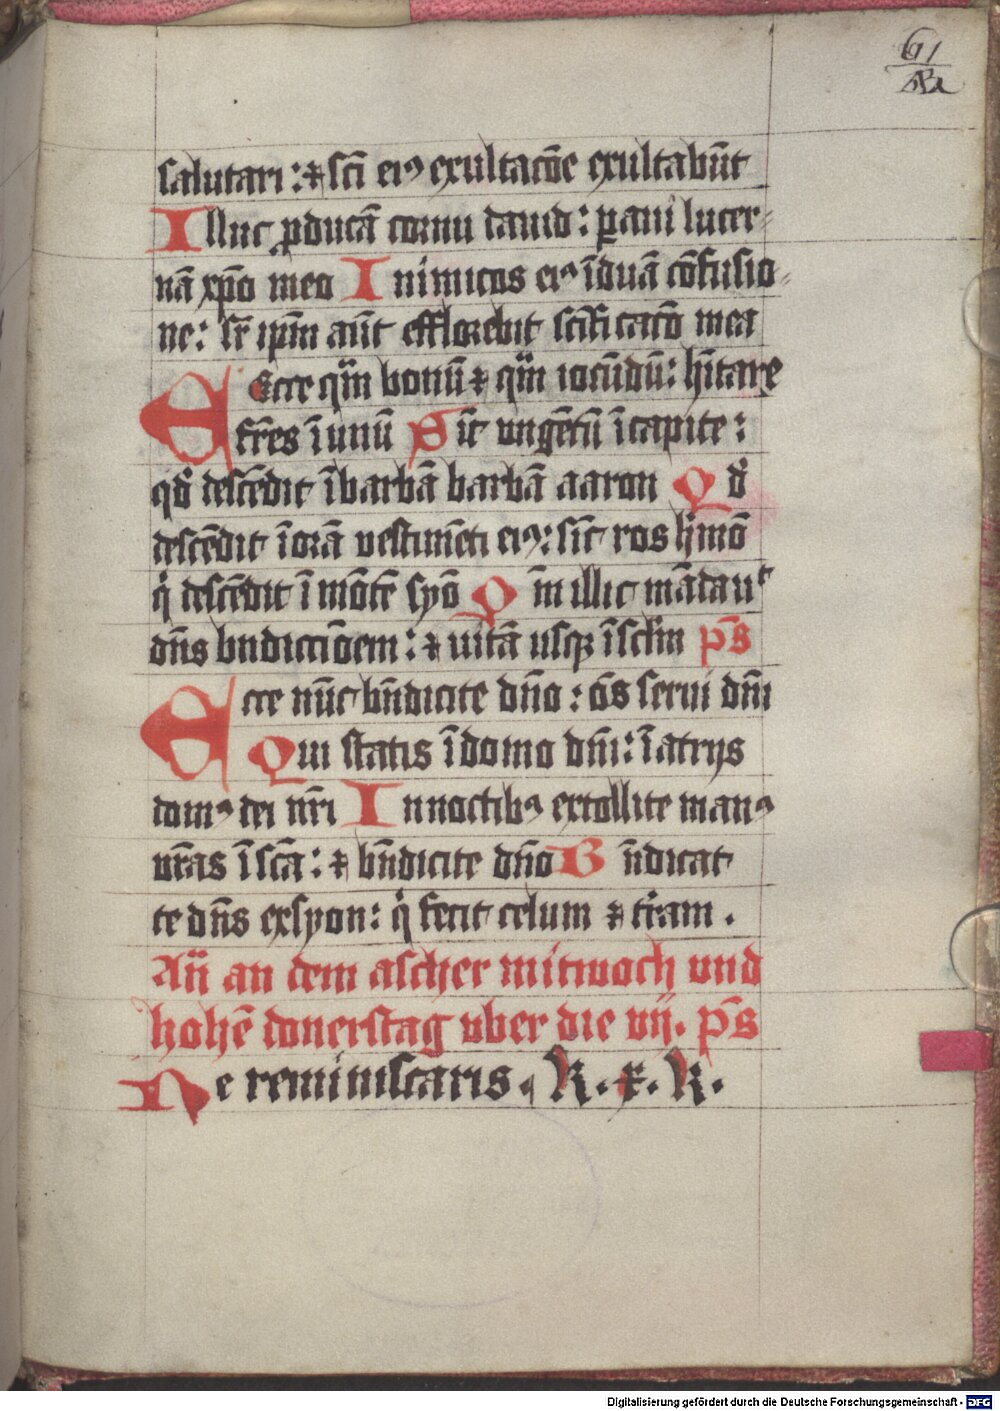 61
salutari: ⁊ sc̄i eiꝰ exultac̄oe exultabūt
Illuc ꝓducā cornu dauid: ꝑaui lucer⸗
nā xp̄o meo Inimicos eiꝰ īduā cōfusio⸗
ne: sr̄ ip̄m aūt efflorebit sc̄ificac̄o mea
Ecce qm̄ bonū ⁊ qm̄ iocūdū: hītare
fr̄es ī unū Sic̄ ungētū ī capite:
qd̄ descēdit ī barbā barbā aaron Qd̄
descēdit ī orā vestimēti eiꝰ: sic̄ ros h̄mō
q̇ descēdit ī mōtē syō Qm̄ illic mādauͭ
dn̄s bndicciōem: ⁊ uitā usqꝫ ī sclm̄ p̄s
Ecce nūc bn̄dicite dn̄o: ōs serui dn̄i
Qui statis ī domo dn̄i: ī atrijs
domꝰ dei nr̄i In noctibꝰ extollite manꝰ
vr̄as ī sc̄a: ⁊ bn̄dicite dn̄o Bn̄dicat
te dn̄s ex syon: q̇ fecit celum ⁊ tr̄am.
An̄ an dem ascher mitwoch vnd
hohē donerstag vber die vij. p̄s
Ne reminiscaris. K. x. K.
Digitalisierung gefördert durch die Deutsche Forschungsgemeinschaft - DFG